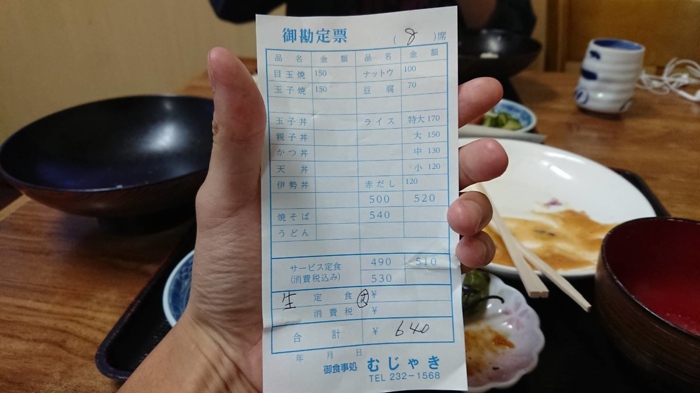 御勘定票 ( 8 )席
品名 金額 品名 金額
目玉焼 150 ナットウ 100
玉子焼 150 豆腐 70
玉子丼 ライス 特大 170
親子丼 大 150
かつ丼 中 130
天丼 小 120
伊勢丼 赤だし 120
500 520
焼そば 540
うどん
サービス定食 490 510
(消費税込み) 530
生 定食 ¥
消費税 ¥
合計 ¥ 640
年 月 日
御食事処 むじゃき
TEL 232-1568